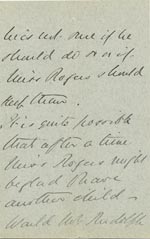 should do so or if
Miss Rogers should
keep them.
It is quite possible
that after a time
Miss Rogers might
be glad to have
another child –
Would Mr. Rudolph